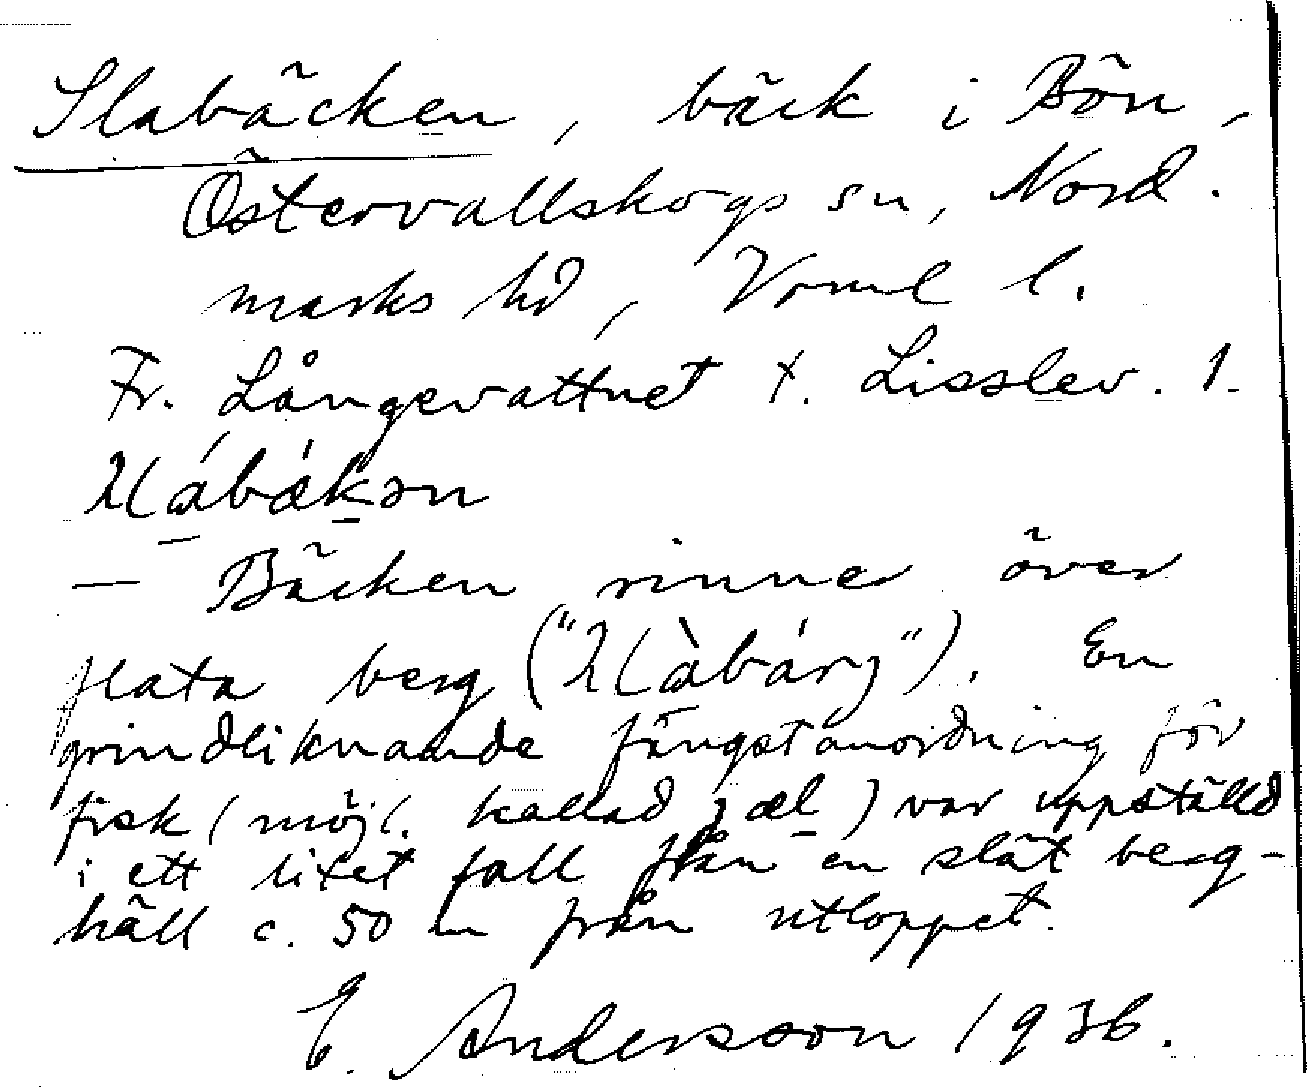 Slabäcken, bäck i Bön,
Östervallskogs sn, Nord-
marks hd, Vrml l.
Fr. Långevattnet t. Lisslev. 1.
– Bäcken rinner över
flata berg. En
grindliknande fångstanordning för
fisk (möjl. kallad) var uppställd
i ett litet fall från en slät berg-
häll c. 50 m från utloppet.
E. Andersson 1936.